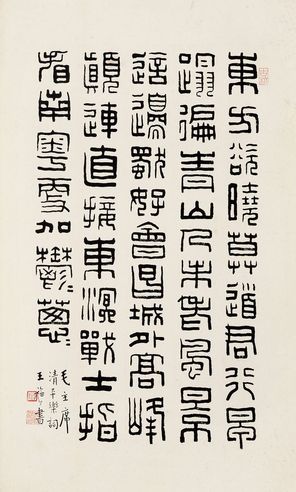 東方欲曉莫道君行早
蹋遍青山人未老風景
這邊獨好會昌城外高峰
顛連直接東溟戰士指
看南粵更加鬱〻蔥〻
毛主席
清平樂詞
王福厂書